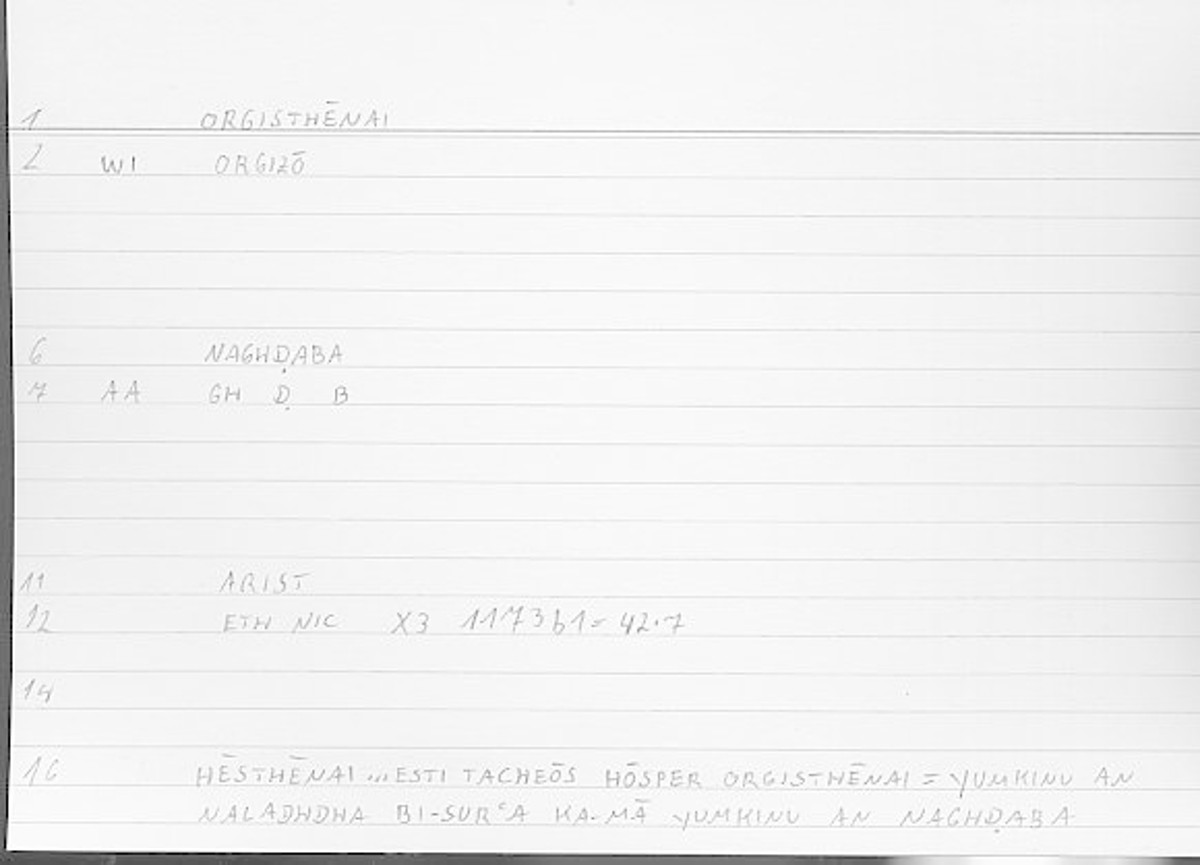 1 ORGISTHĒNAI
2 WI ORGIZŌ
6 NAGHḌABA
7 AA GH Ḍ B
11 ARIST
12 ETH NIC X3 1173b1= 42.7
14
16 HĒSTHĒNAI ... ESTI TACHEŌS HŌSPER ORGISTHĒNAI = YUMKINU AN
NALADHDHA BI-SURʿA KA-MĀ YUMKINU AN NAGHḌABA